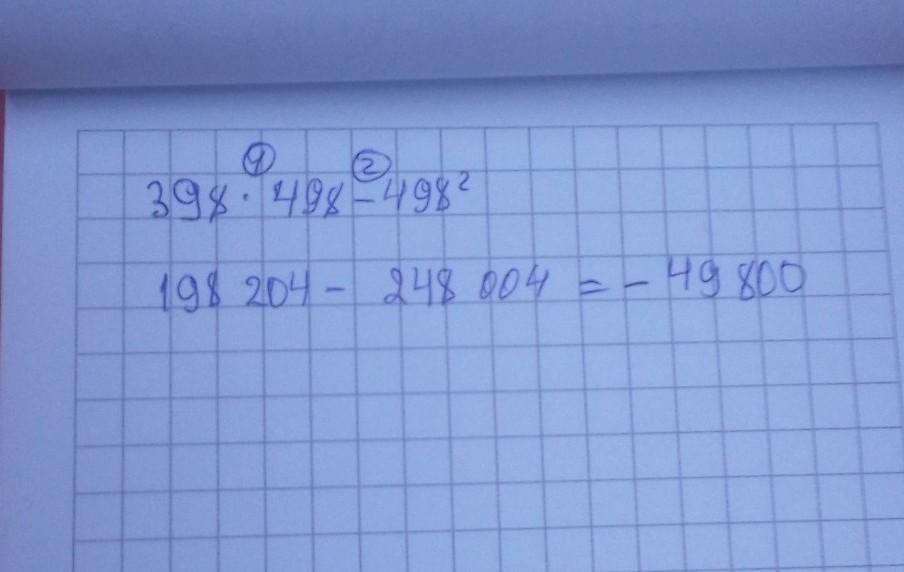 ① ②
398 · 498 - 498²
198 204 - 248 004 = - 49 800